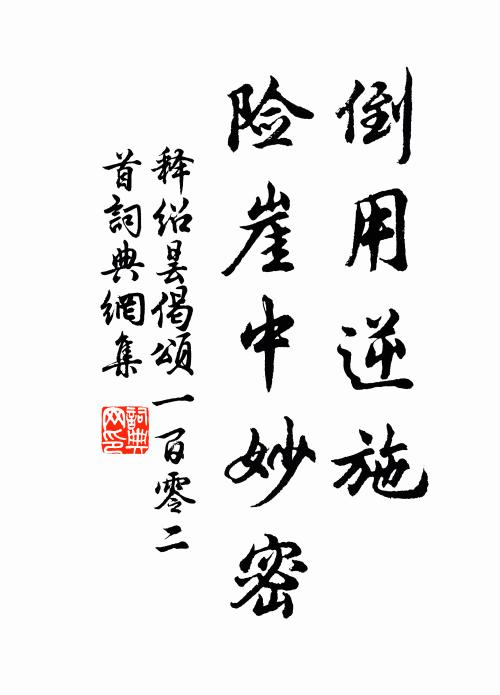 倒用逆施
险崖中妙密
释绍昙偈頌一百零二
首詞典網集
詞典网印